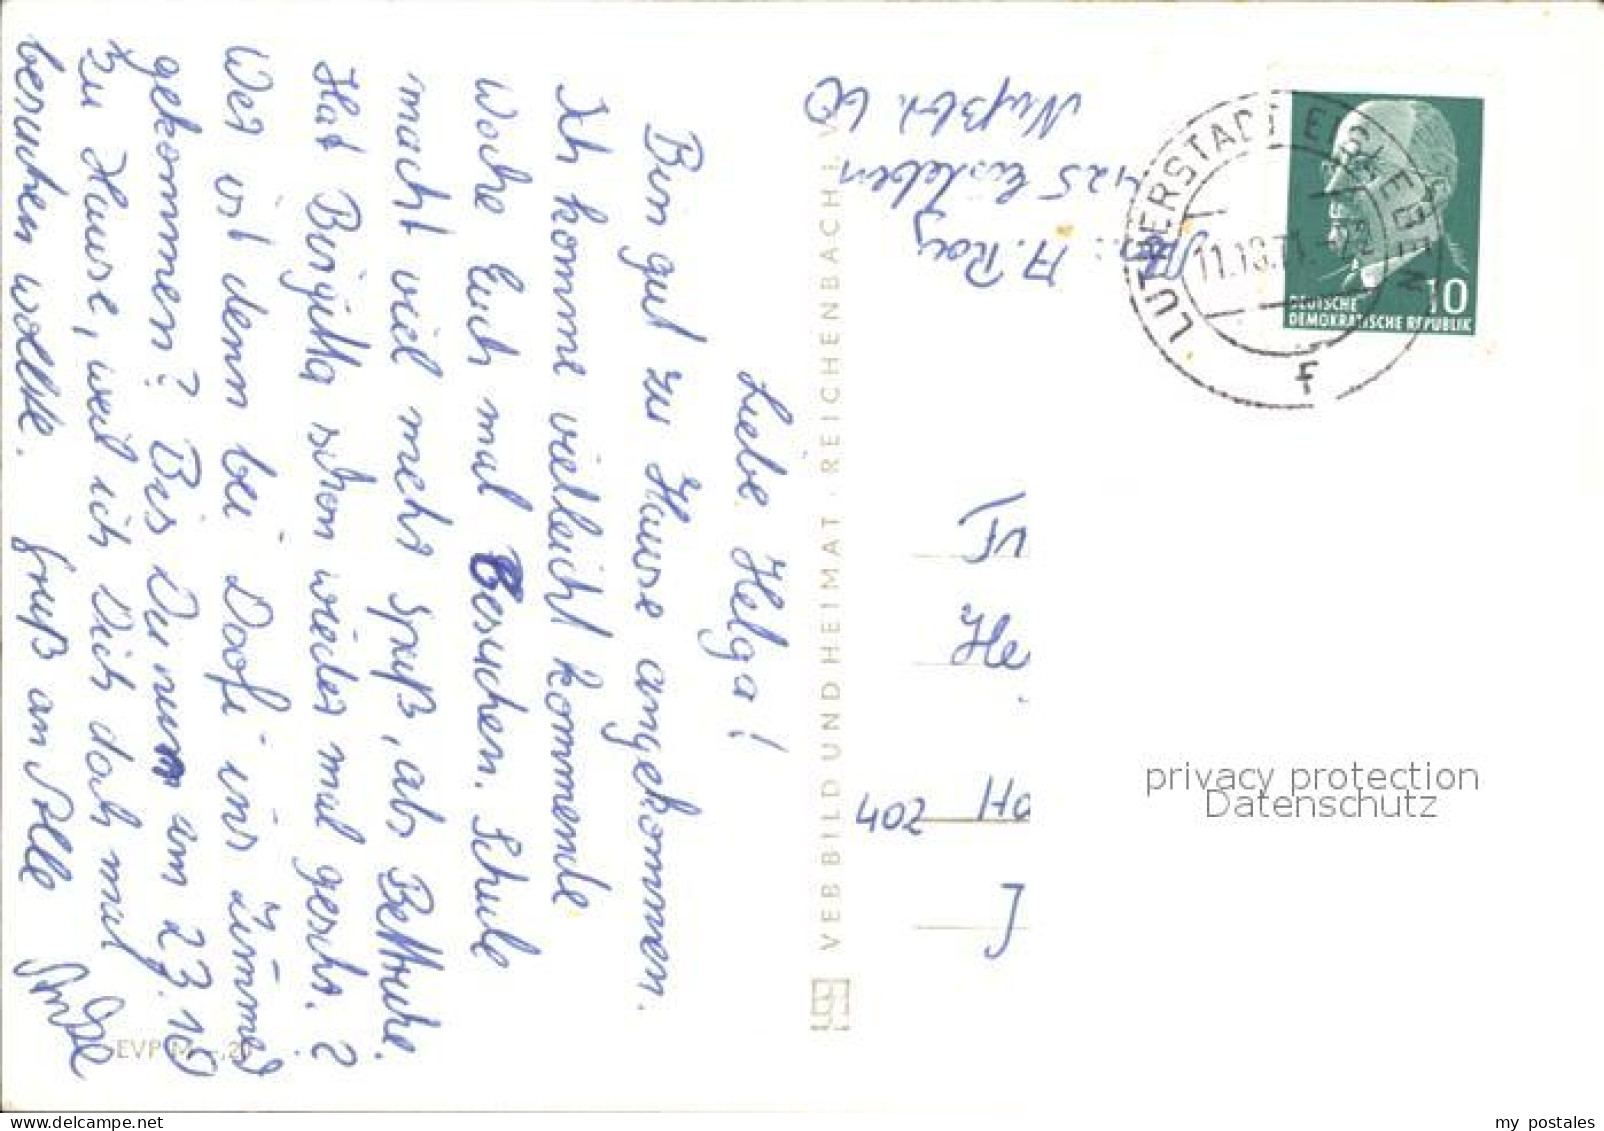 Liebe Helga!
Bin gut zu Hause angekommen.
Ich komme vielleicht kommende
Woche Euch mal Besuchen. Schule
macht viel mehr Spaß, als Bettruhe.
Hat Birgitta schon wieder mal geschr. ?
Wer ist denn bei Doofi ins Zimmer
gekommen? Bis Du nun am 23.10
zu Hause, weil ich Dich doch mal
besuchen wollte. Gruß an Alle
Abs.: A.
425 Eisleben
60
402
Ho
He
J
VEB BILD UND HEIMAT · REICHENBACH I. V.
EVP M -,20
LUTHERSTADT EISLEBEN
11.10.71.-
F
10
DEUTSCHE
DEMOKRATISCHE REPUBLIK
privacy protection
Datenschutz
my postales